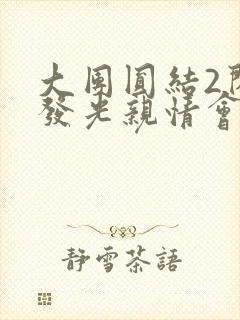 大團圓結2開
發光親情會
靜雪茶語